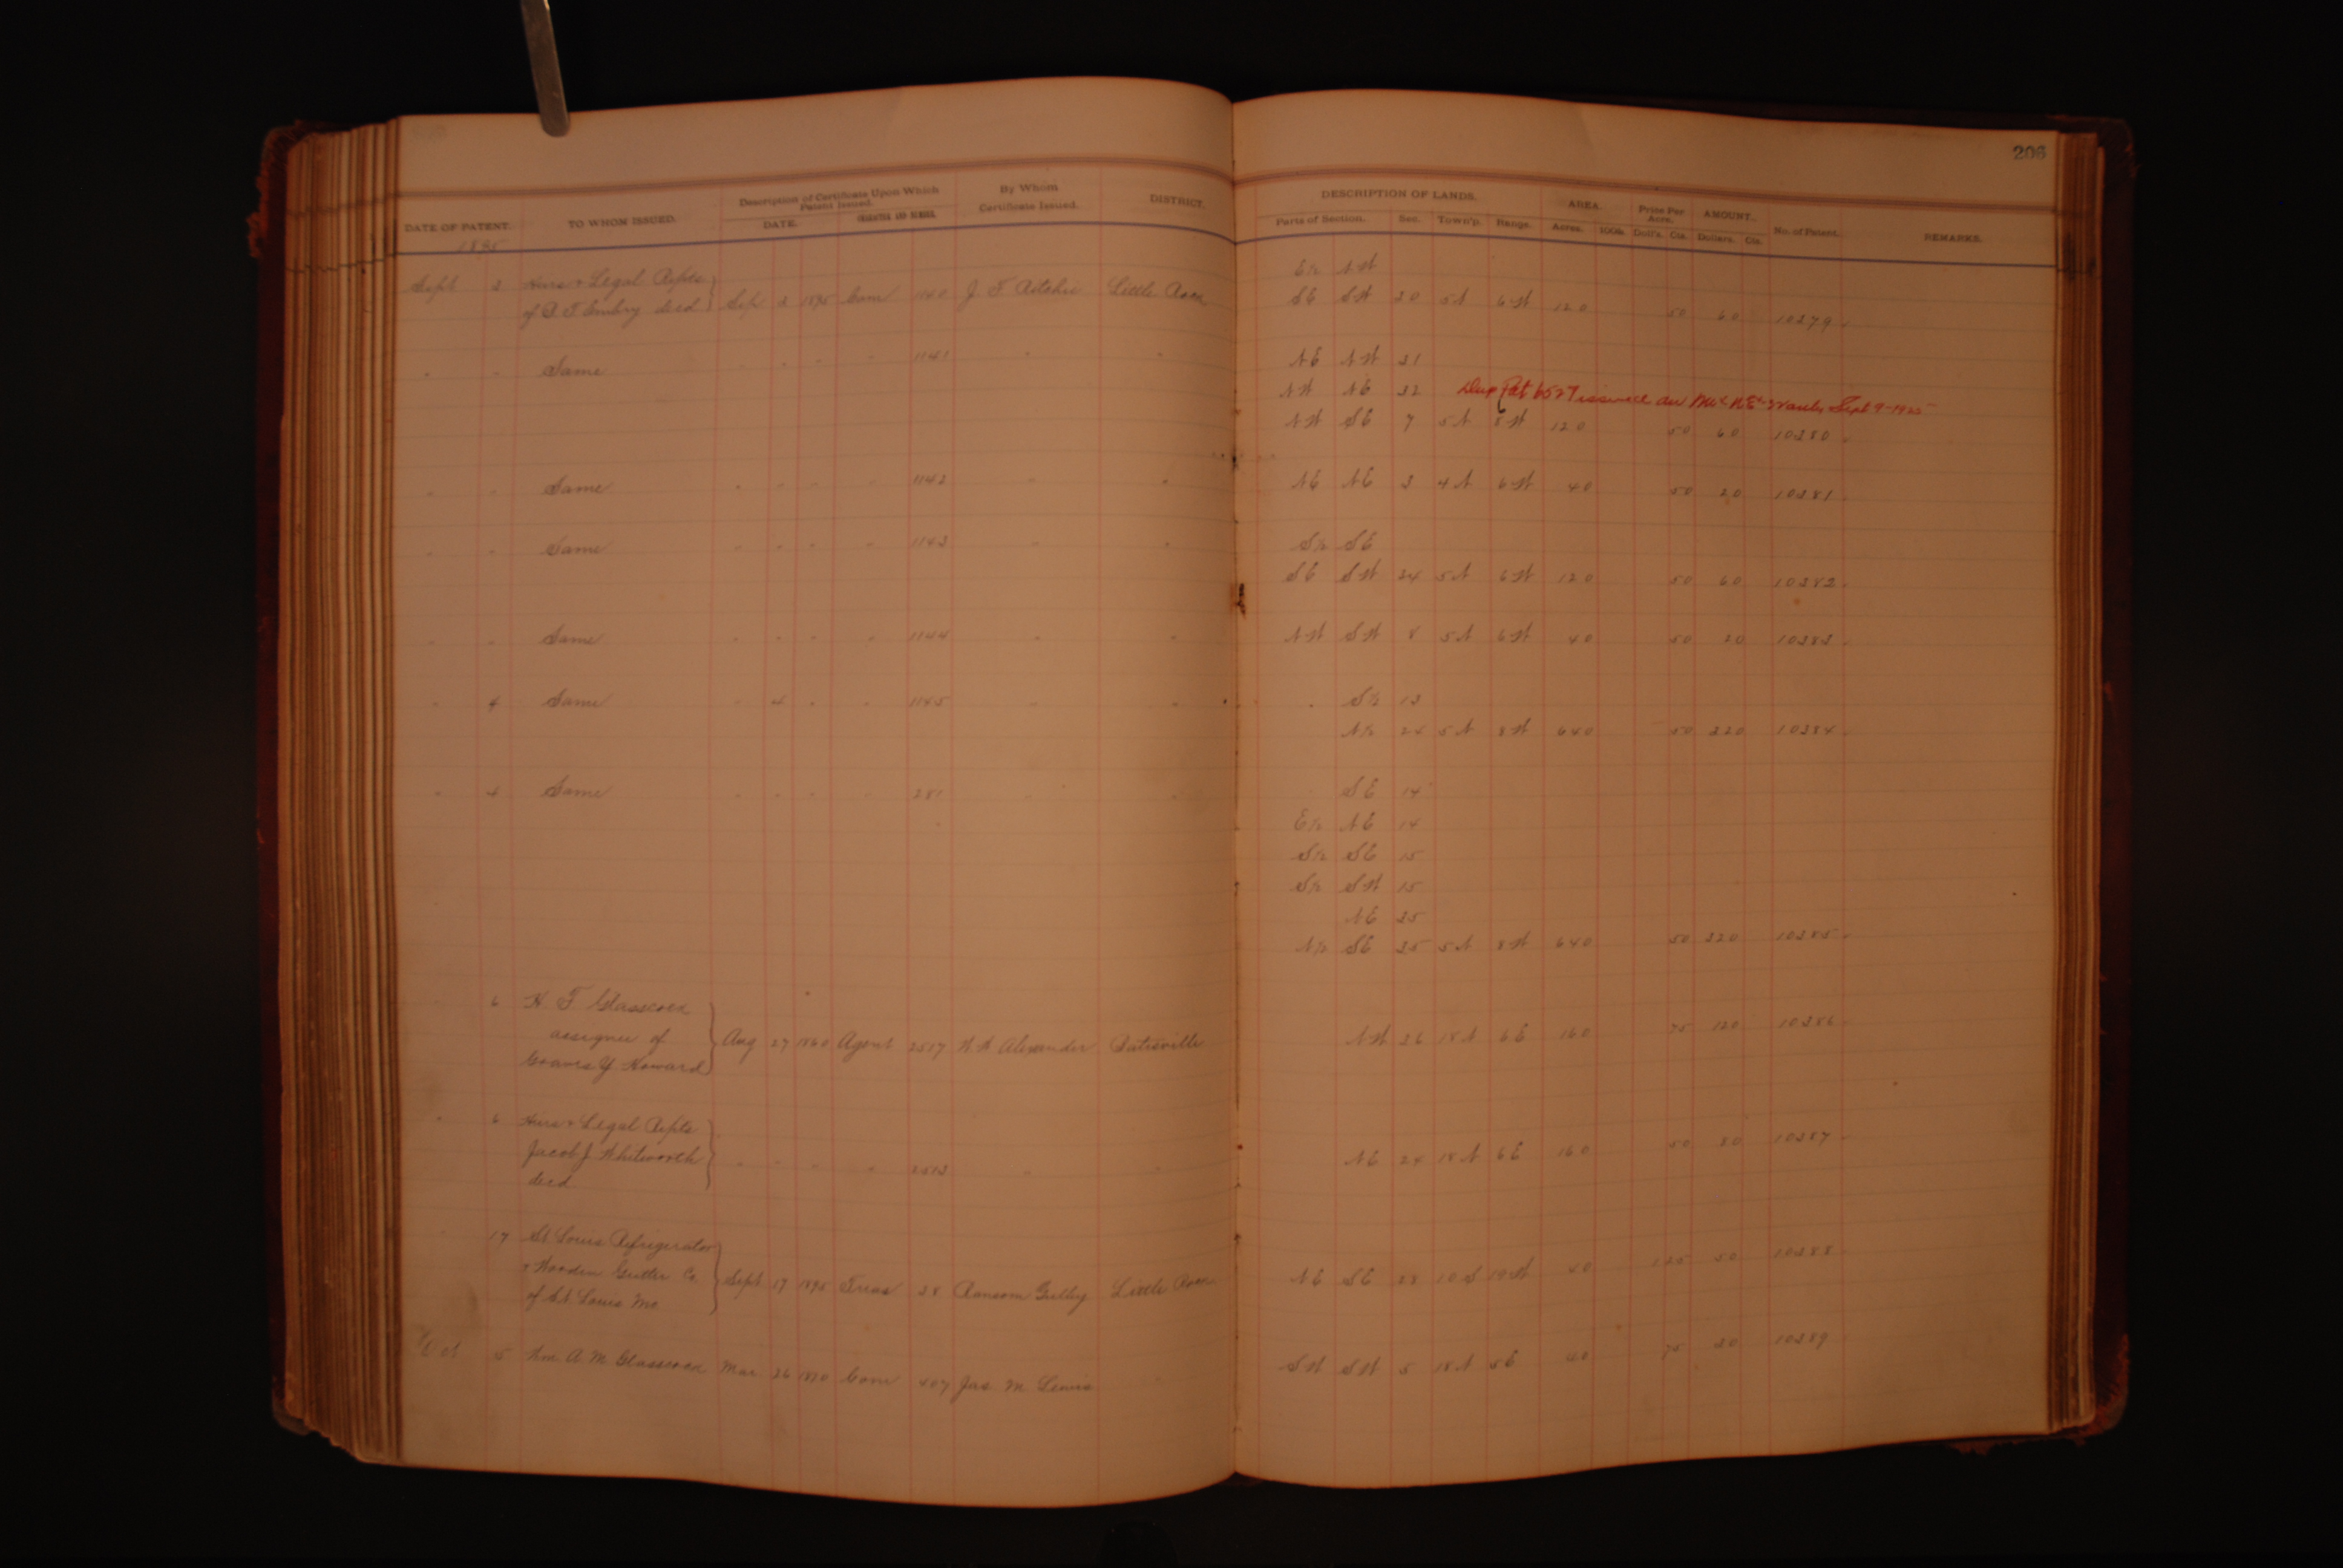 206
DATE OF PATENT. TO WHOM ISSUED. Description of Certificate Upon Which Patent Issued. DATE. CHARACTER AND NUMBER. By Whom Certificate Issued. DISTRICT.
DESCRIPTION OF LANDS. Parts of Section. Sec. Town'p. Range. AREA. Acres. 100s. Price Per Acre. Doll's. Cts. AMOUNT. Dollars. Cts. No. of Patent. REMARKS.
1895
Sept 3 Heirs & Legal Repts E½ NW
of B. T. Embry decd Sep 3 1895 Com 1140 J T Ritchie Little Rock SE SW 30 5N 6W 120 50 60 10379
" " Same " " " " 1141 " " NE NW 31
NW NE 32 Dup Pat issued on Sept 9-1922
NW SE 7 5N 8W 120 50 60 10380
" " Same " " " " 1142 " " NE NE 3 4N 6W 40 50 20 10381
" " Same " " " " 1143 " " S½ SE
SE SW 24 5N 6W 120 50 60 10382
" " Same " " " " 1144 " " NW SW 8 5N 6W 40 50 20 10383
" 4 Same " 4 " " 1145 " " S½ 13
N½ 24 5N 8W 640 50 320 10384
" 4 Same " " " " 281 " " SE 14
E½ NE 14
S½ SE 15
S½ SW 15
NE 35
N½ SE 35 5N 8W 640 50 320 10385
6 H. T. Glasscock
assignee of Aug 27 1860 Agent 2517 Alexander Batesville NW 26 18N 6E 160 75 120 10386
Graves Y. Howard
" 6 Heirs & Legal Repts
Jacob J. Whitworth " " " " 2513 " " NE 24 18N 6E 160 50 80 10387
decd
17 St Louis Refrigerator
& Wooden Gutter Co. Sept 17 1895 Treas 38 Ransom Gulley Little Rock NE SE 28 10S 19W 40 125 50 10388
of St. Louis Mo
Oct 5 Wm A. M. Glasscock Mar 26 1870 Com 407 Jas. M. Lewis " SW SW 5 18N 5E 40 75 30 10389